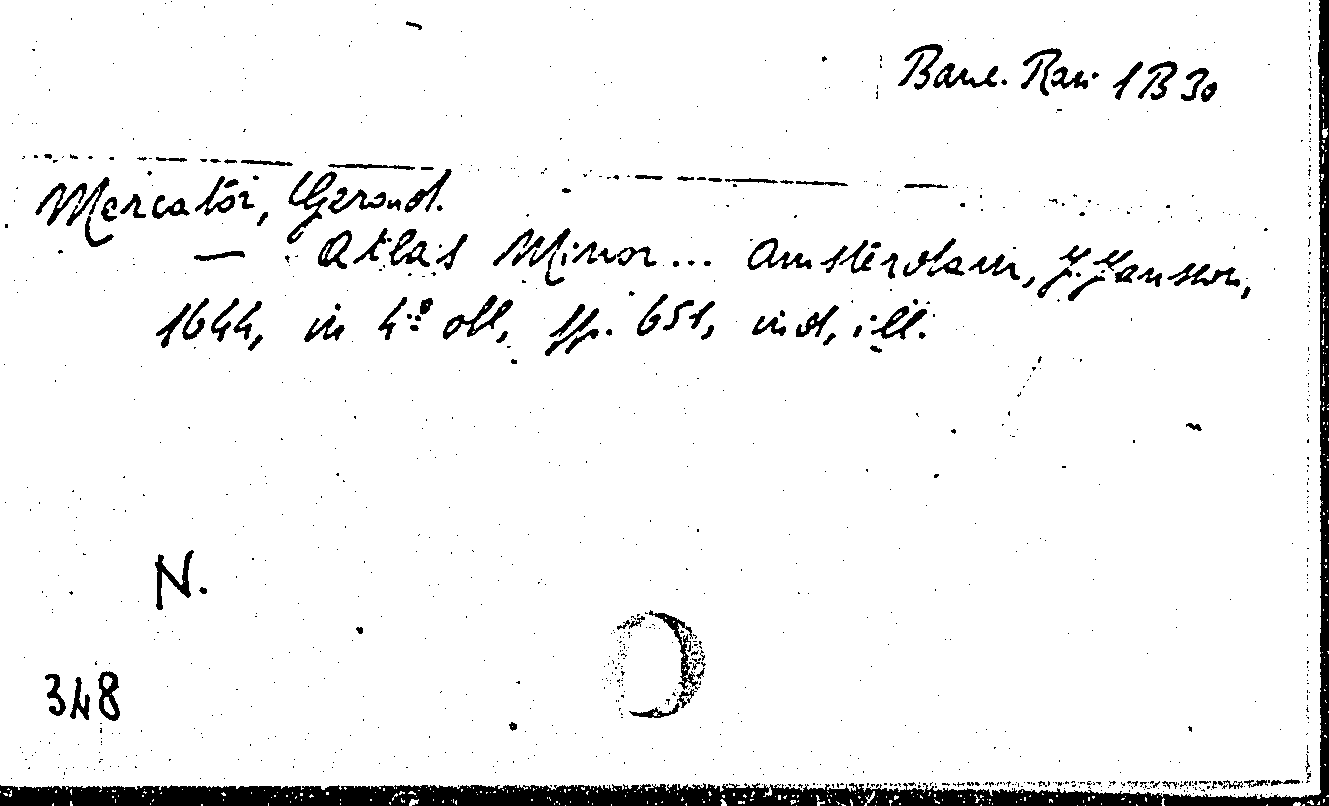 Banc. Rari 1 B 30
Mercator, Gerard.
— Atlas Minor... Amsterdam, J. Jansson,
1644, in 4º obl, pp. 651, ind, ill.
N.
348